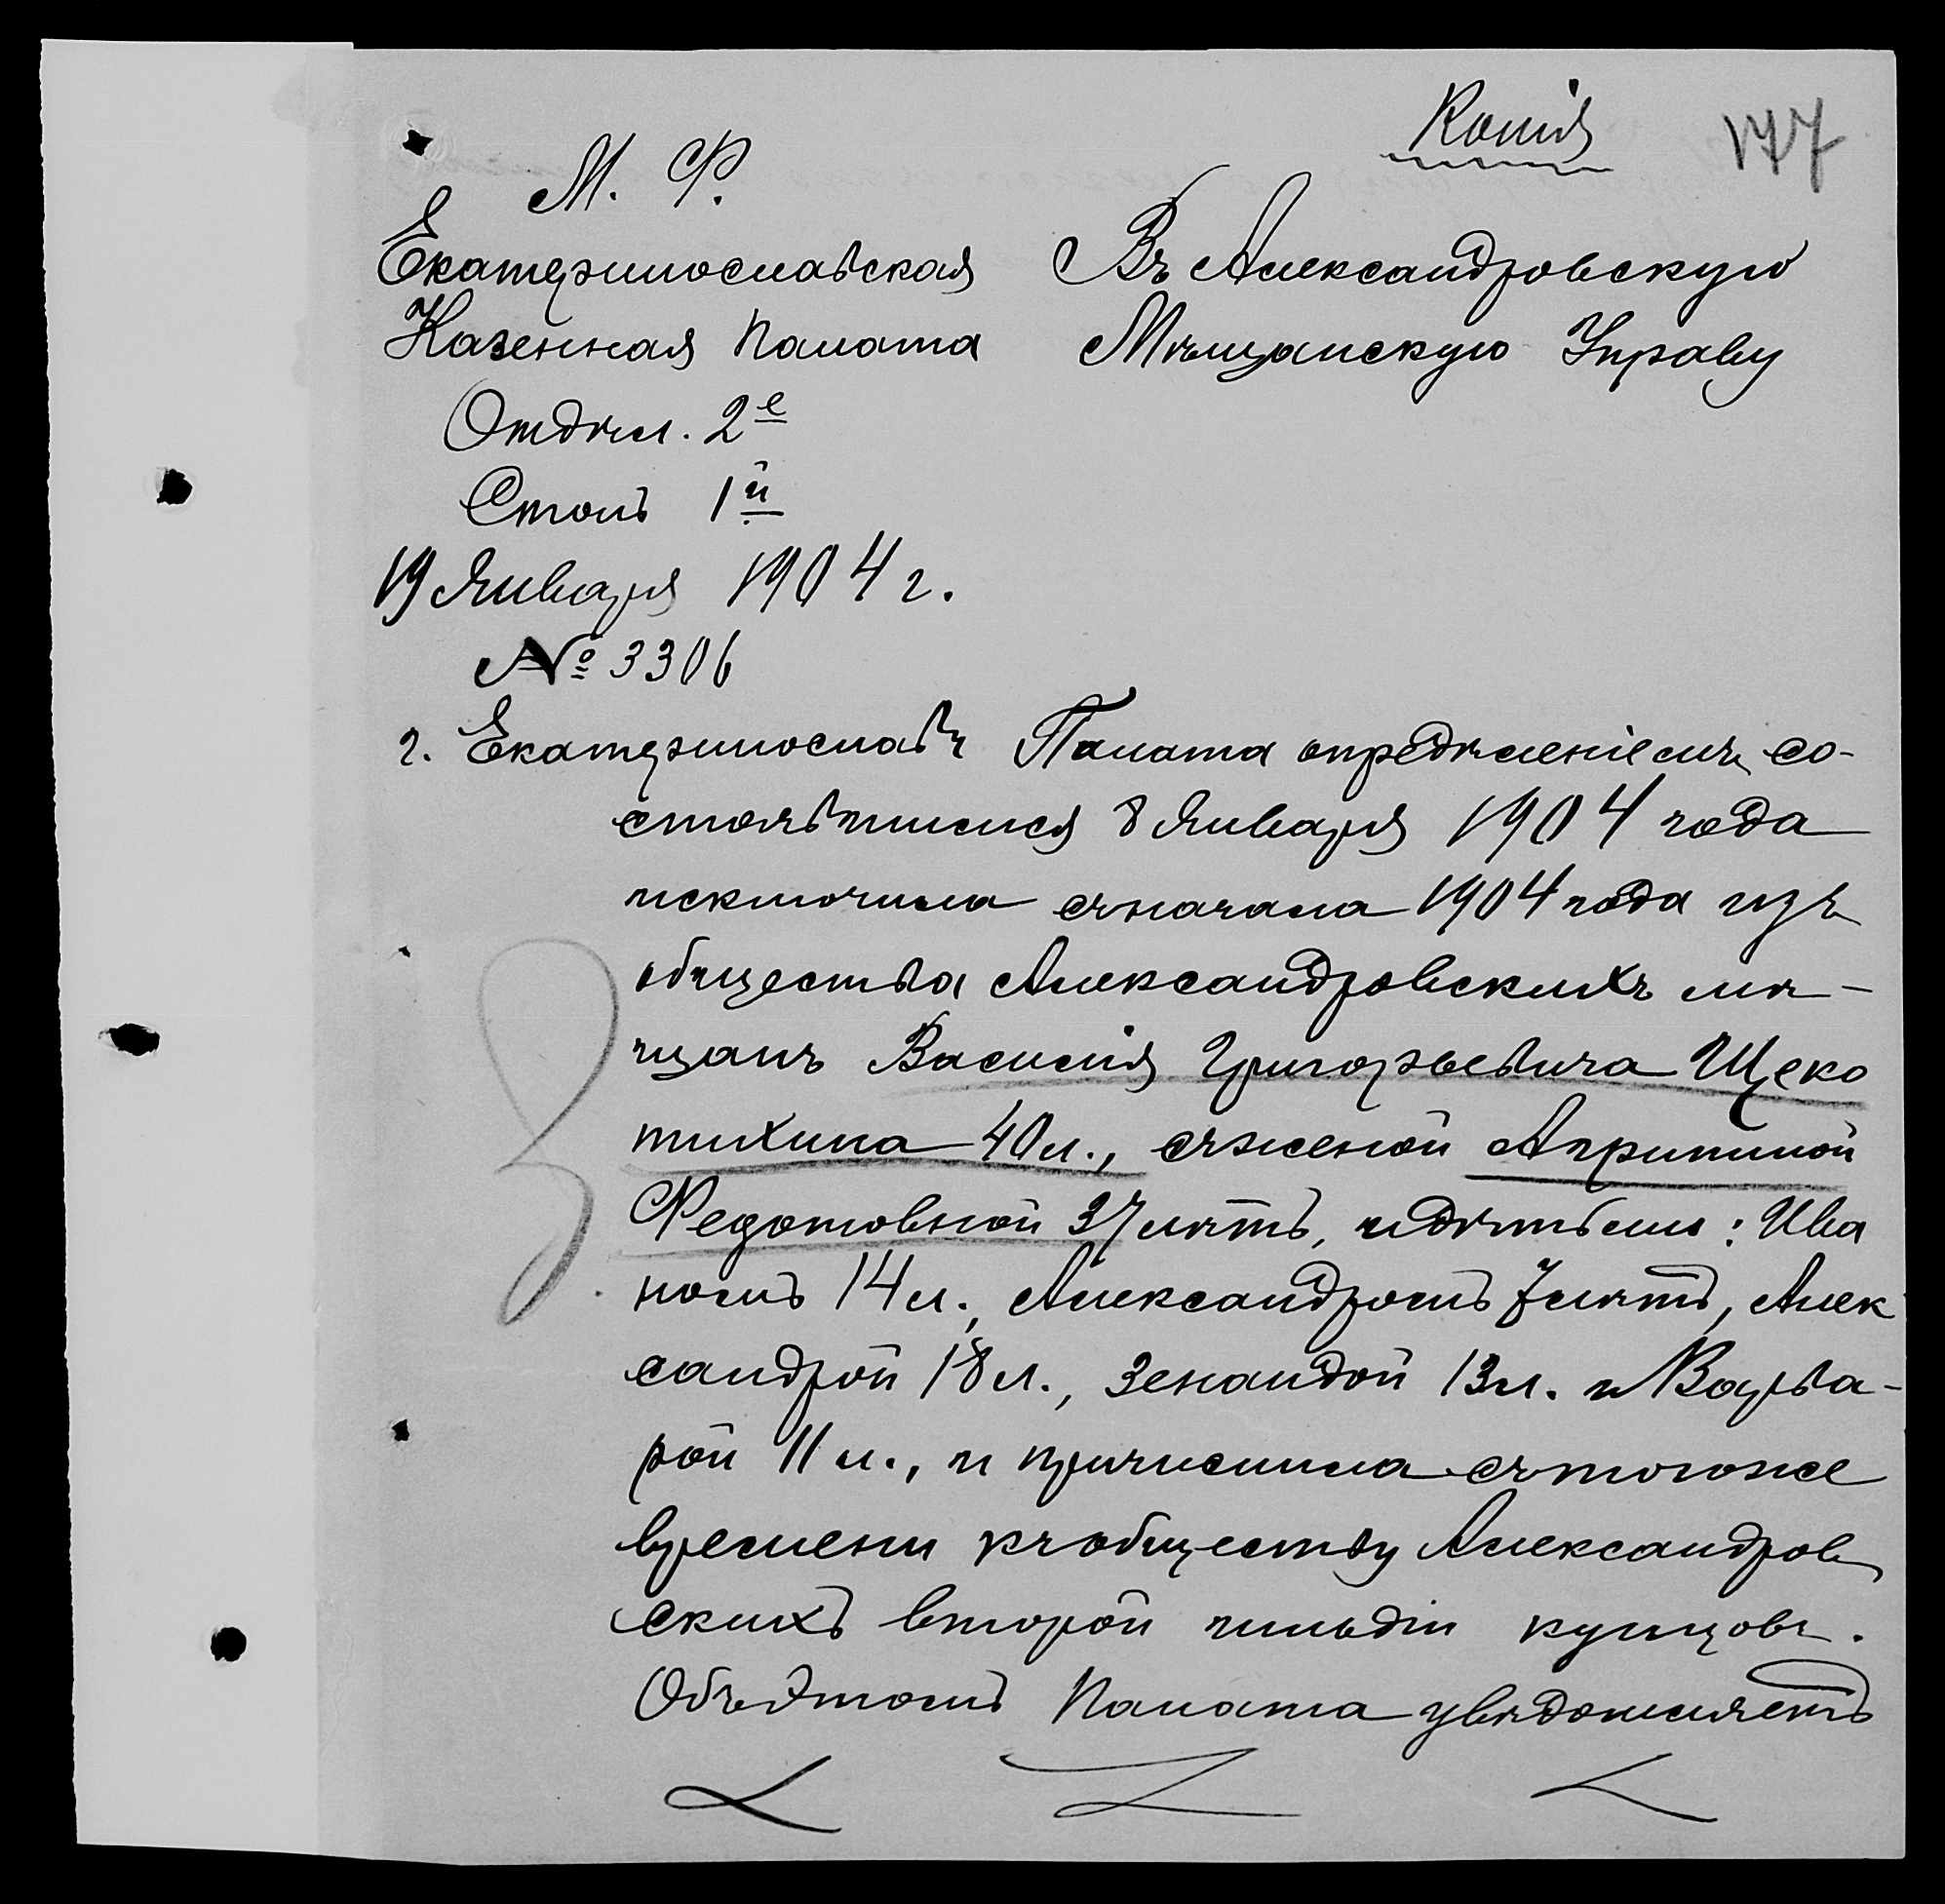 Копія 177
М. Ф.
Екатеринославская
Казенная Палата
Отдѣл. 2е
Столъ 1й
19 Января 1904 г.
№ 3306
г. Екатеринославъ
Въ Александровскую
Мѣщанскую Управу
Палата опредѣленіемъ, со-
стоявшимся 8 Января 1904 года
исключила съ начала 1904 года изъ
общества Александровскихъ мѣ-
щанъ Василія Григорьевича Щеко
тихина 40 л., съ женой Агрипиной
Федотовной 37 лѣтъ, и дѣтьми: Ива
номъ 14 л., Александромъ 7 лѣтъ, Алек
сандрой 18 л., Зенаидой 13 л. и Варва-
рой 11 л., и причислила съ того же
времени къ обществу Александров
скихъ второй гильдіи купцовъ.
Объ этомъ Палата увѣдомляетъ